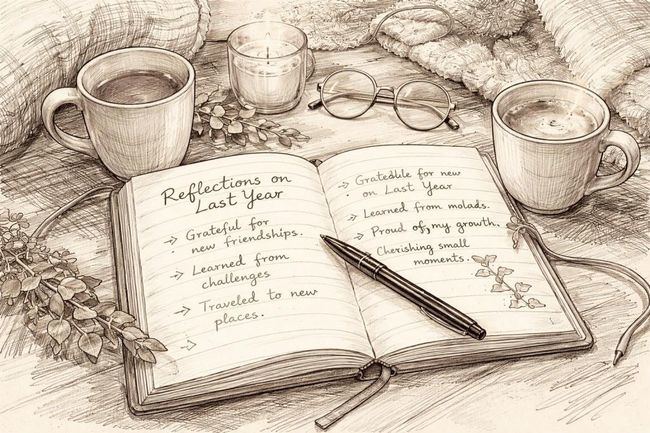 Reflections on
Last Year
→ Grateful for
new friendships.
→ Learned from
challenges
→ Traveled to new
places.
→
→ Gratedble for new
on Last Year
→ Learned from molads.
→ Proud of, my growth.
Cherishing small
moments.